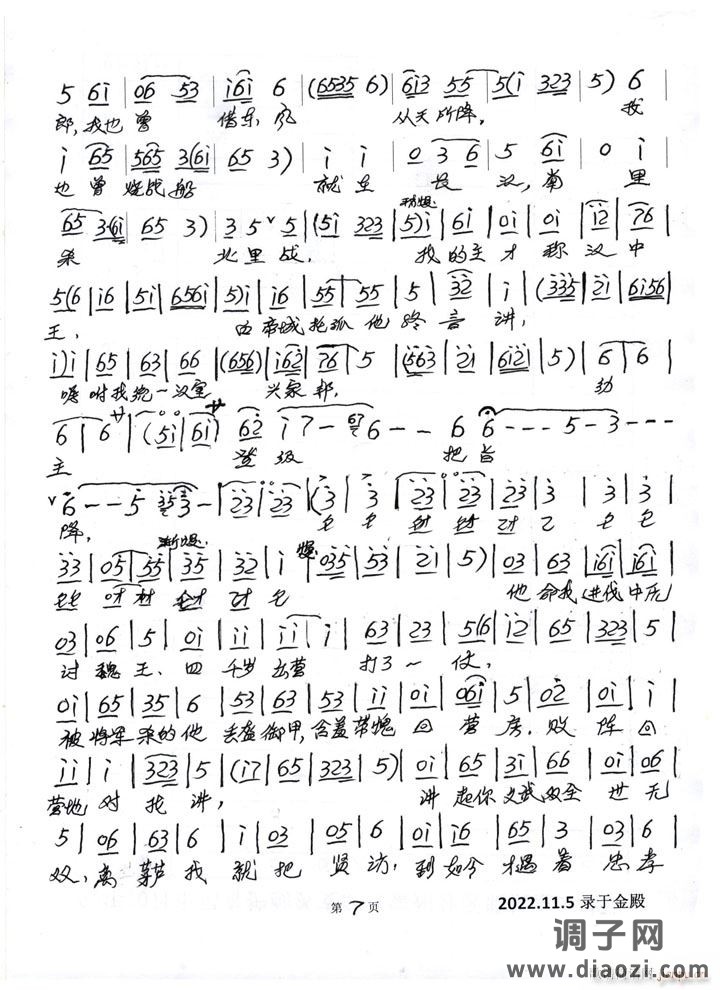 5 6i | 06 53 | i6i 6 | (6535 6) | 6i3 55 | 5(i 323 | 5) 6
郎,我也曾 借东风 从天所降, 我
i 65 | 565 3(6i | 65 3) | i i | 0 3 6 | 5 6i | 0 i
也曾烧战船 就在 长 江,南 里
65 3(6i | 65 3) | 3 5 5 | (5i 323 | 5)i | 6i | 0i | 0i | i2 | 76
杀 北里战, 我的主才称汉中
5(6 | i6 | 5i | 656i | 5)i | i6 | 55 | 55 | 5 | 32 | i | (335 | 2i | 6i56
王, 白帝城托孤他终言讲,
i)i | 65 | 63 | 66 | (656) | i62 | 76 | 5 | (563 | 2i | 6i2i | 5) | 6 | 6
嘱咐我抱一汉室 兴家邦, 幼
6 | 6 | (5i | 6i) 62 i 7 - 67 6 - - 6 6 - - - 5 - 3 - - -
主 登级 把旨
6 - - 5 353 - | 23 | 23 | (3 | 3 | 23 | 23 | 23 | 3 | 3 | 3
降,
33 | 05 | 55 | 35 | 32 | i | 035 | 53 | 2i | 5) | 03 | 63 | i6i | i6i
他命我进伐中元
03 | 06 | 5 | 0i | ii | ii | i 63 | 23 | 5(6 | i2 | 65 | 323 | 5
讨魏王、四千岁出营 打了一仗,
0i | 65 | 35 | 6 | 53 | 63 | 53 | ii | 0i | 06i | 5 | 02 | 0i | i
被将军杀的他丢盔卸甲,含羞带愧回营房,败阵回
ii | i | 323 | 5 | (i7 | 65 | 323 | 5) | 0i | 65 | 3i | 66 | 0i | 06
营地对我讲, 讲起你文武双全世无
5 | 06 | 63 | 6 | i | 03 | 05 | 6 | 0i | i6 | 65 | 3 | 03 | 6
双,离茅芦我就把贤访,到如今才遇着忠孝
第7页
2022.11.5 录于金殿
调子网
www.diaozi.com